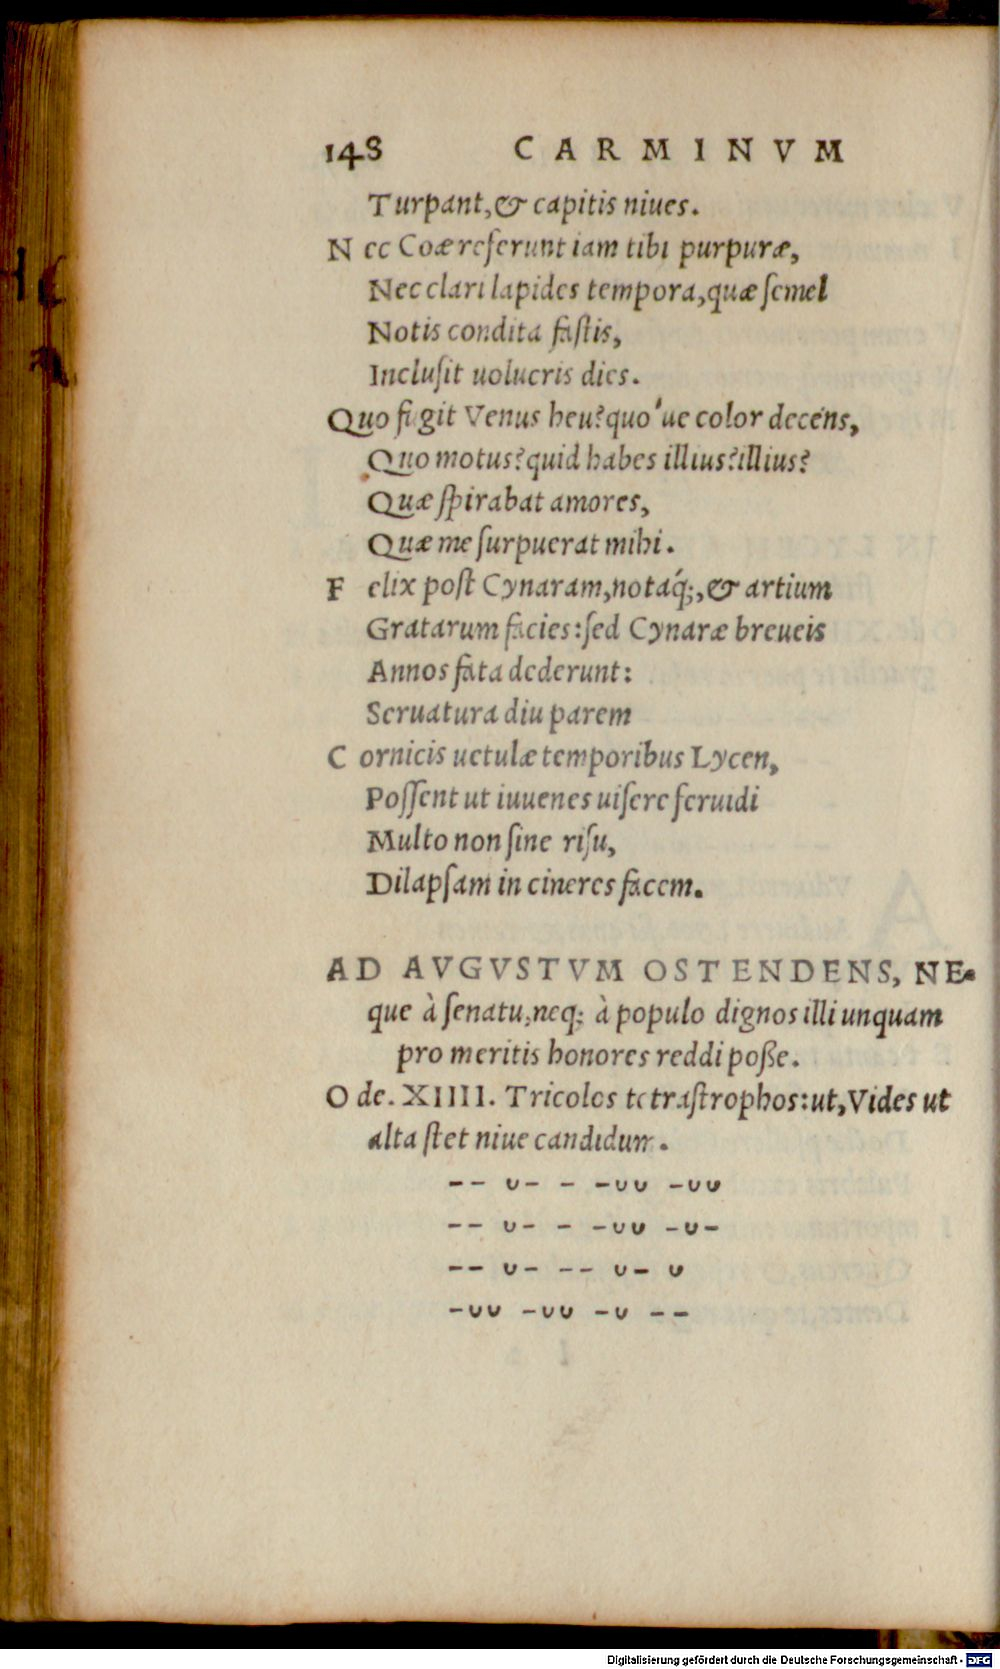 148 CARMINVM
Turpant,& capitis niues.
N ec Coæ referunt iam tibi purpuræ,
Nec clari lapides tempora,quæ ſemel
Notis condita faſtis,
Incluſit uolucris dies.
Quo fugit Venus heu?quo'ue color decens,
Quo motus?quid habes illius?illius?
Quæ ſpirabat amores,
Quæ me ſurpuerat mihi.
F elix poſt Cynaram,notáq;,& artium
Gratarum facies:ſed Cynaræ breueis
Annos fata dederunt:
Seruatura diu parem
C ornicis uetulæ temporibus Lycen,
Poſſent ut iuuenes uiſere feruidi
Multo non ſine riſu,
Dilapſam in cineres facem.
AD AVGVSTVM OSTENDENS, NE-
que à ſenatu,neq; à populo dignos illi unquam
pro meritis honores reddi poße.
O de. XIIII. Tricolos tetraſtrophos:ut,Vides ut
alta ſtet niue candidum.
-- ᴗ- - -ᴗᴗ -ᴗᴗ
-- ᴗ- - -ᴗᴗ -ᴗ-
-- ᴗ- -- ᴗ- ᴗ
-ᴗᴗ -ᴗᴗ -ᴗ --
Digitalisierung gefördert durch die Deutsche Forschungsgemeinschaft - DFG